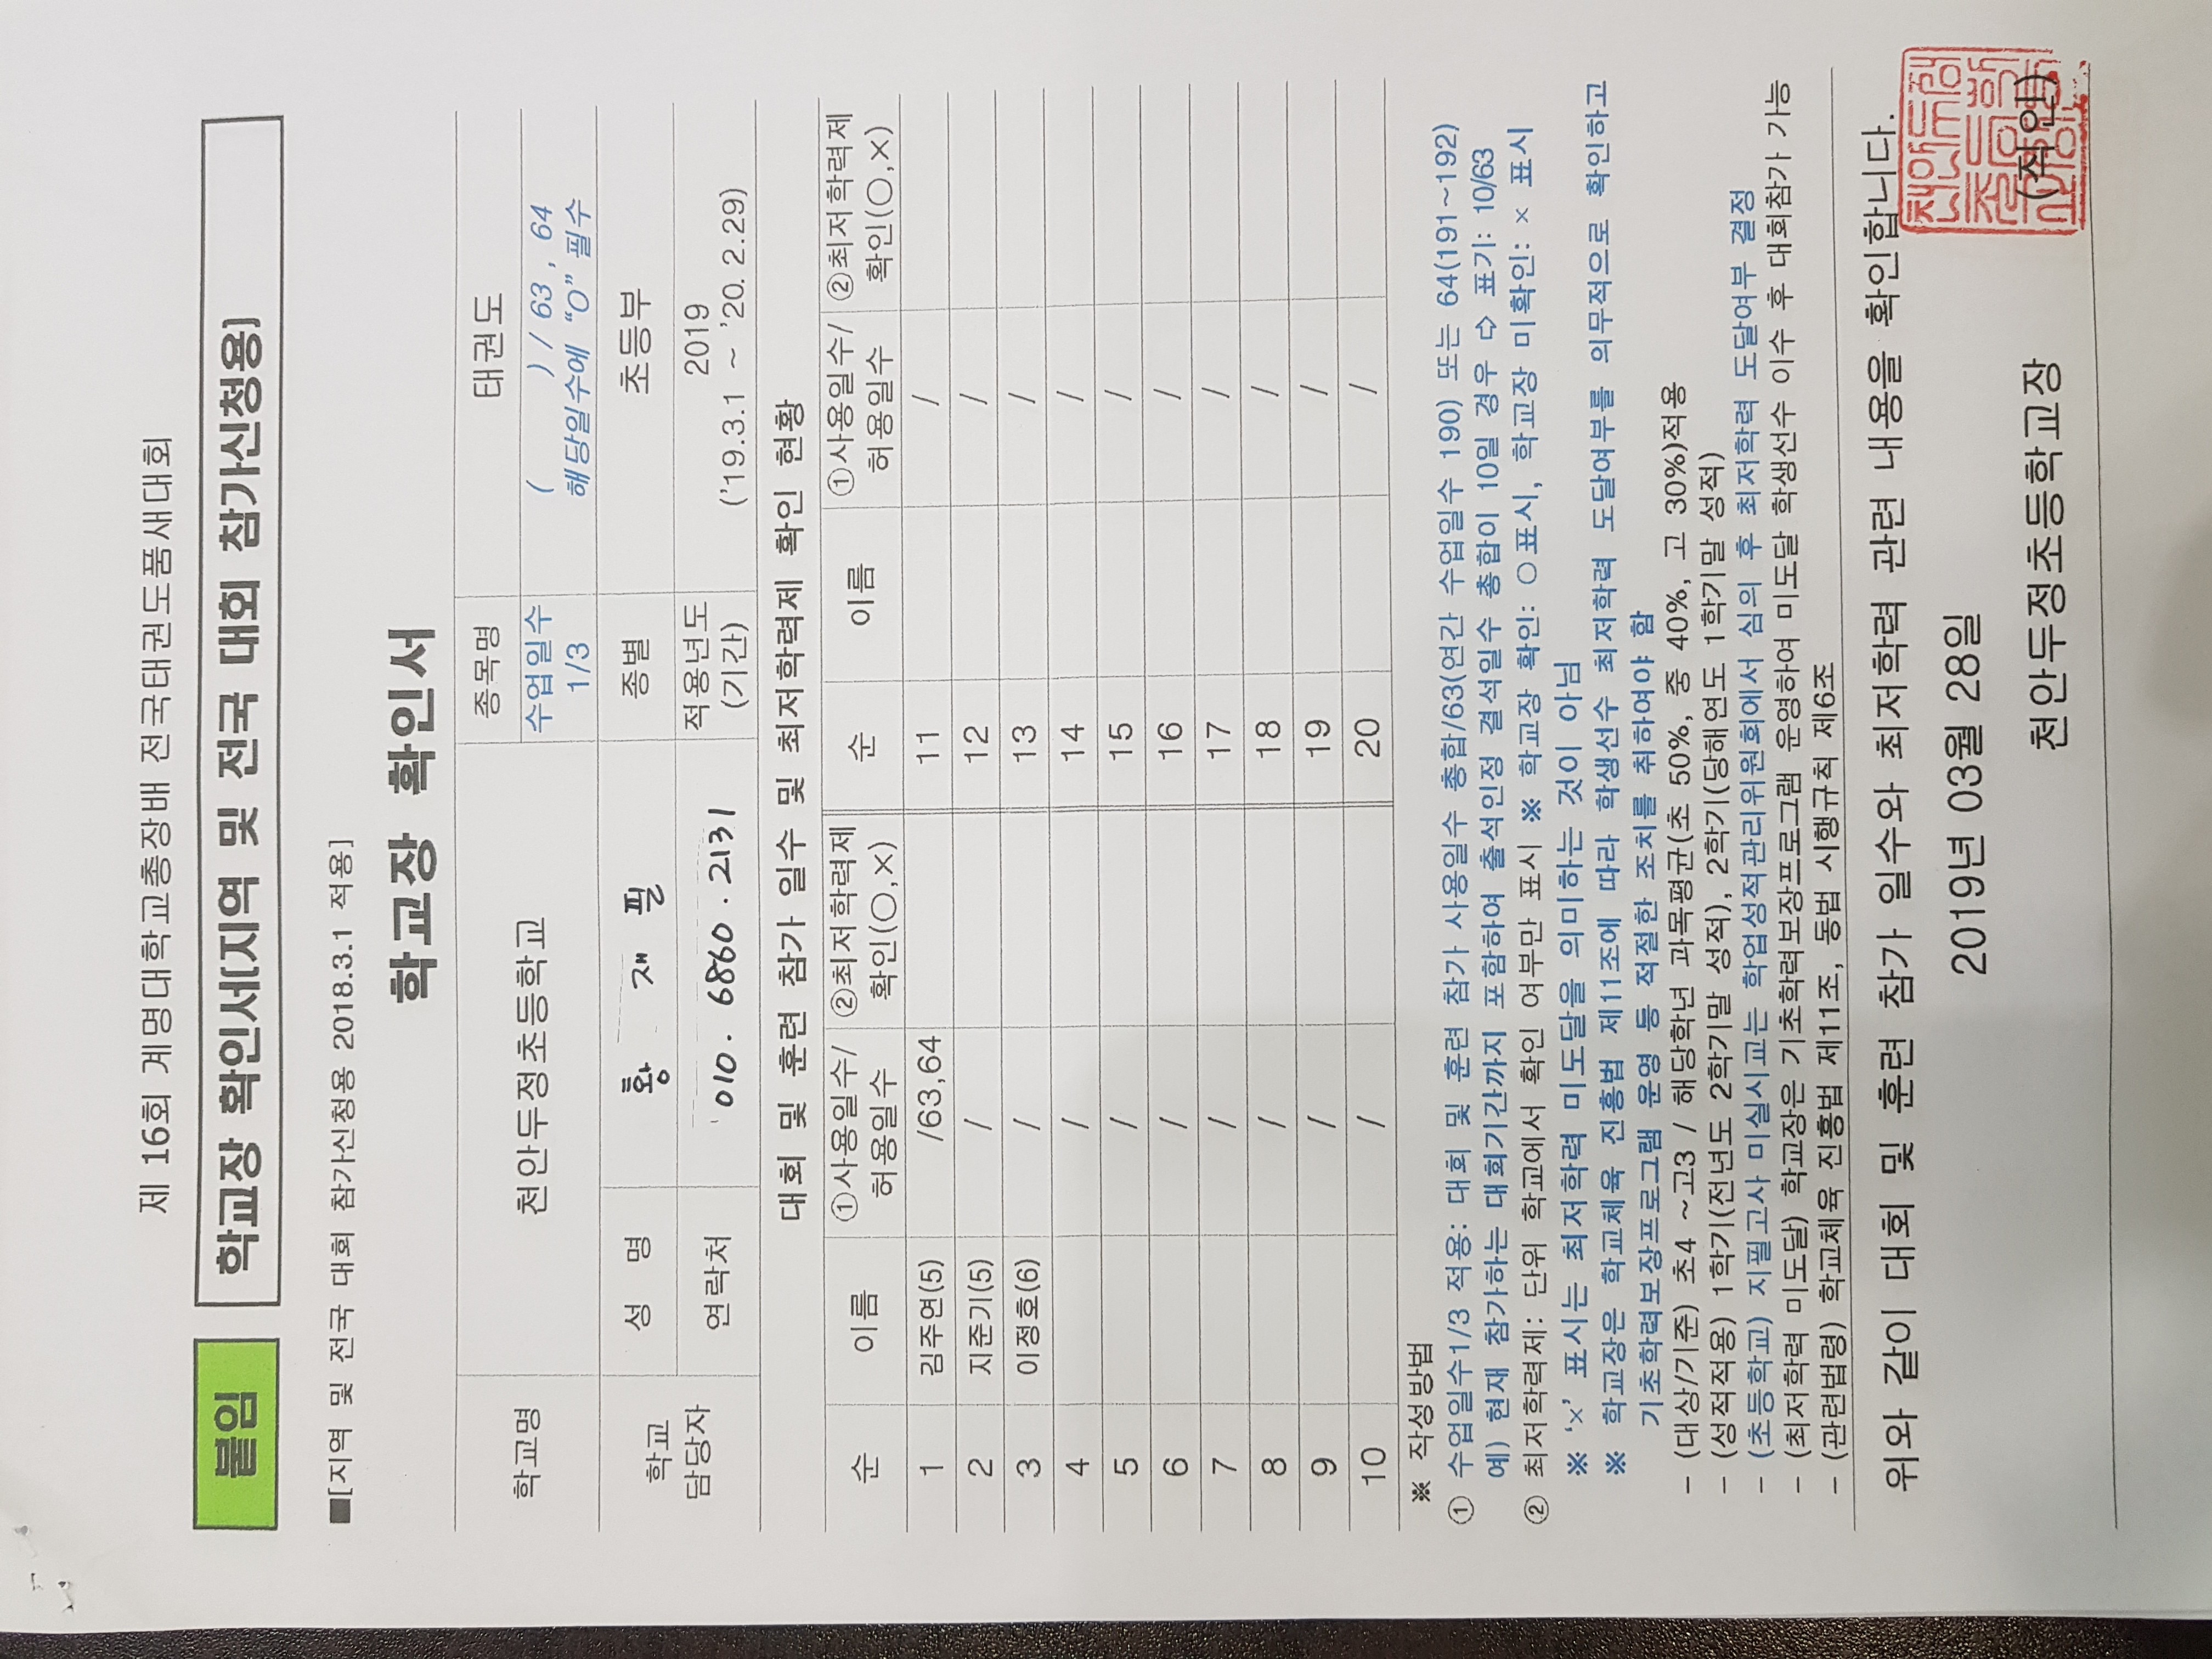 제 16회 계명대학교총장배 전국태권도품새대회
붙임 학교장 확인서(지역 및 전국 대회 참가신청용)
■[지역 및 전국 대회 참가신청용 2018.3.1 적용]
학교장 확인서
학교명 천안두정초등학교 종목명 태권도
수업일수 1/3 ( ) / 63 , 64 해당일수에 “O” 필수
학교 담당자 성 명 황 재 필 종별 초등부
연락처 010. 6860. 2131 적용년도 (기간) 2019 ('19.3.1 ~ '20. 2.29)
대회 및 훈련 참가 일수 및 최저학력제 확인 현황
순 이름 ①사용일수/허용일수 ②최저학력제 확인(○,×) 순 이름 ①사용일수/허용일수 ②최저학력제 확인(○,×)
1 김주연(5) /63,64 11 /
2 지준기(5) / 12 /
3 이정호(6) / 13 /
4 / 14 /
5 / 15 /
6 / 16 /
7 / 17 /
8 / 18 /
9 / 19 /
10 / 20 /
※ 작성방법
① 수업일수1/3 적용: 대회 및 훈련 참가 사용일수 총합/63(연간 수업일수 190) 또는 64(191~192)
예) 현재 참가하는 대회기간까지 포함하여 출석인정 결석일수 총합이 10일 경우 ⇨ 표기: 10/63
② 최저학력제: 단위 학교에서 확인 여부만 표시 ※ 학교장 확인: ○표시, 학교장 미확인: × 표시
※ '×' 표시는 최저학력 미도달을 의미하는 것이 아님
※ 학교장은 학교체육 진흥법 제11조에 따라 학생선수 최저학력 도달여부를 의무적으로 확인하고
기초학력보장프로그램 운영 등 적절한 조치를 취하여야 함
- (대상/기준) 초4 ~고3 / 해당학년 과목평균(초 50%, 중 40%, 고 30%)적용
- (성적적용) 1학기(전년도 2학기말 성적), 2학기(당해연도 1학기말 성적)
- (초등학교) 지필고사 미실시교는 학업성적관리위원회에서 심의 후 최저학력 도달여부 결정
- (최저학력 미도달) 학교장은 기초학력보장프로그램 운영하여 미도달 학생선수 이수 후 대회참가 가능
- (관련법령) 학교체육 진흥법 제11조, 동법 시행규칙 제6조
위와 같이 대회 및 훈련 참가 일수와 최저학력 관련 내용을 확인합니다.
2019년 03월 28일
천안두정초등학교장 (직인)